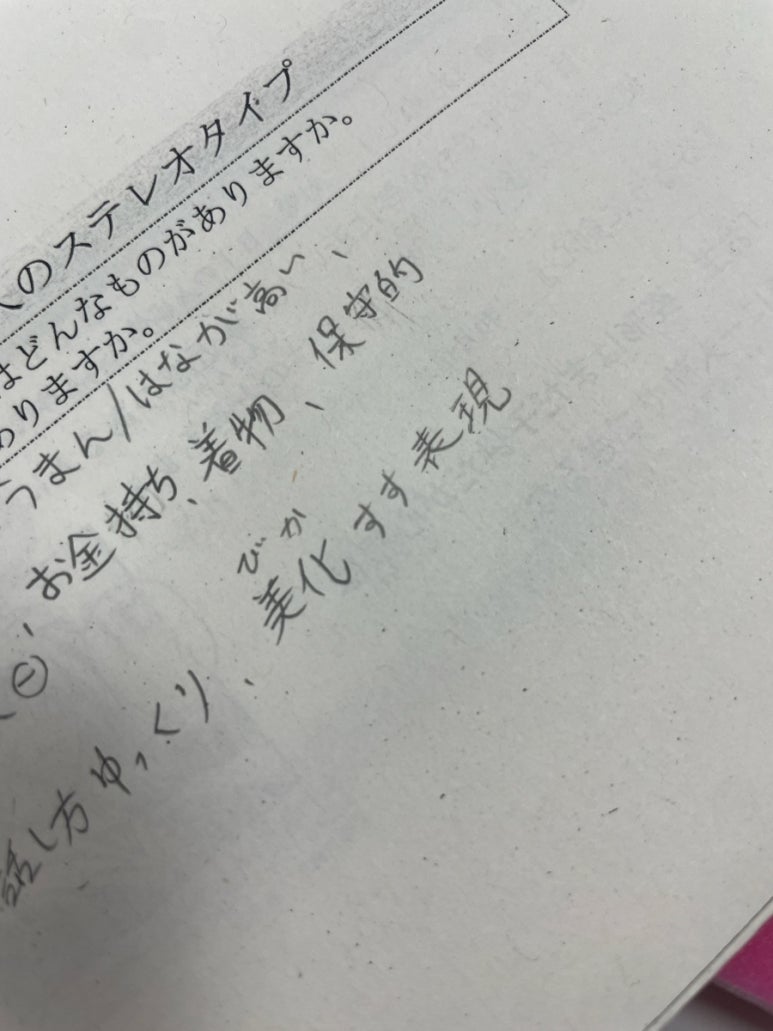 のステレオタイプ
はどんなものがありますか。
ありますか。
うまん/はなが高い、
お金持ち、着物、保守的
⊖
びか
美化すす表現
話し方ゆっくり、